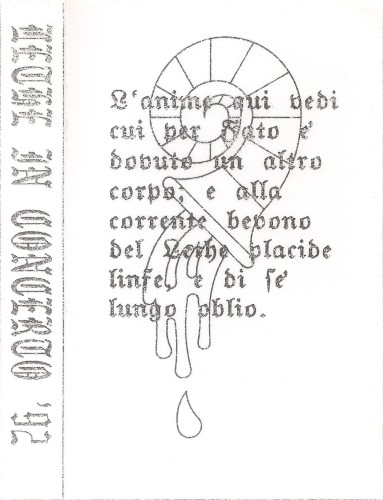 IN CONCERTO
L'anime qui vedi
cui per Fato e'
dovuto un altro
corpo, e alla
corrente bevono
del Lethe placide
linfe, e di se'
lungo oblio.